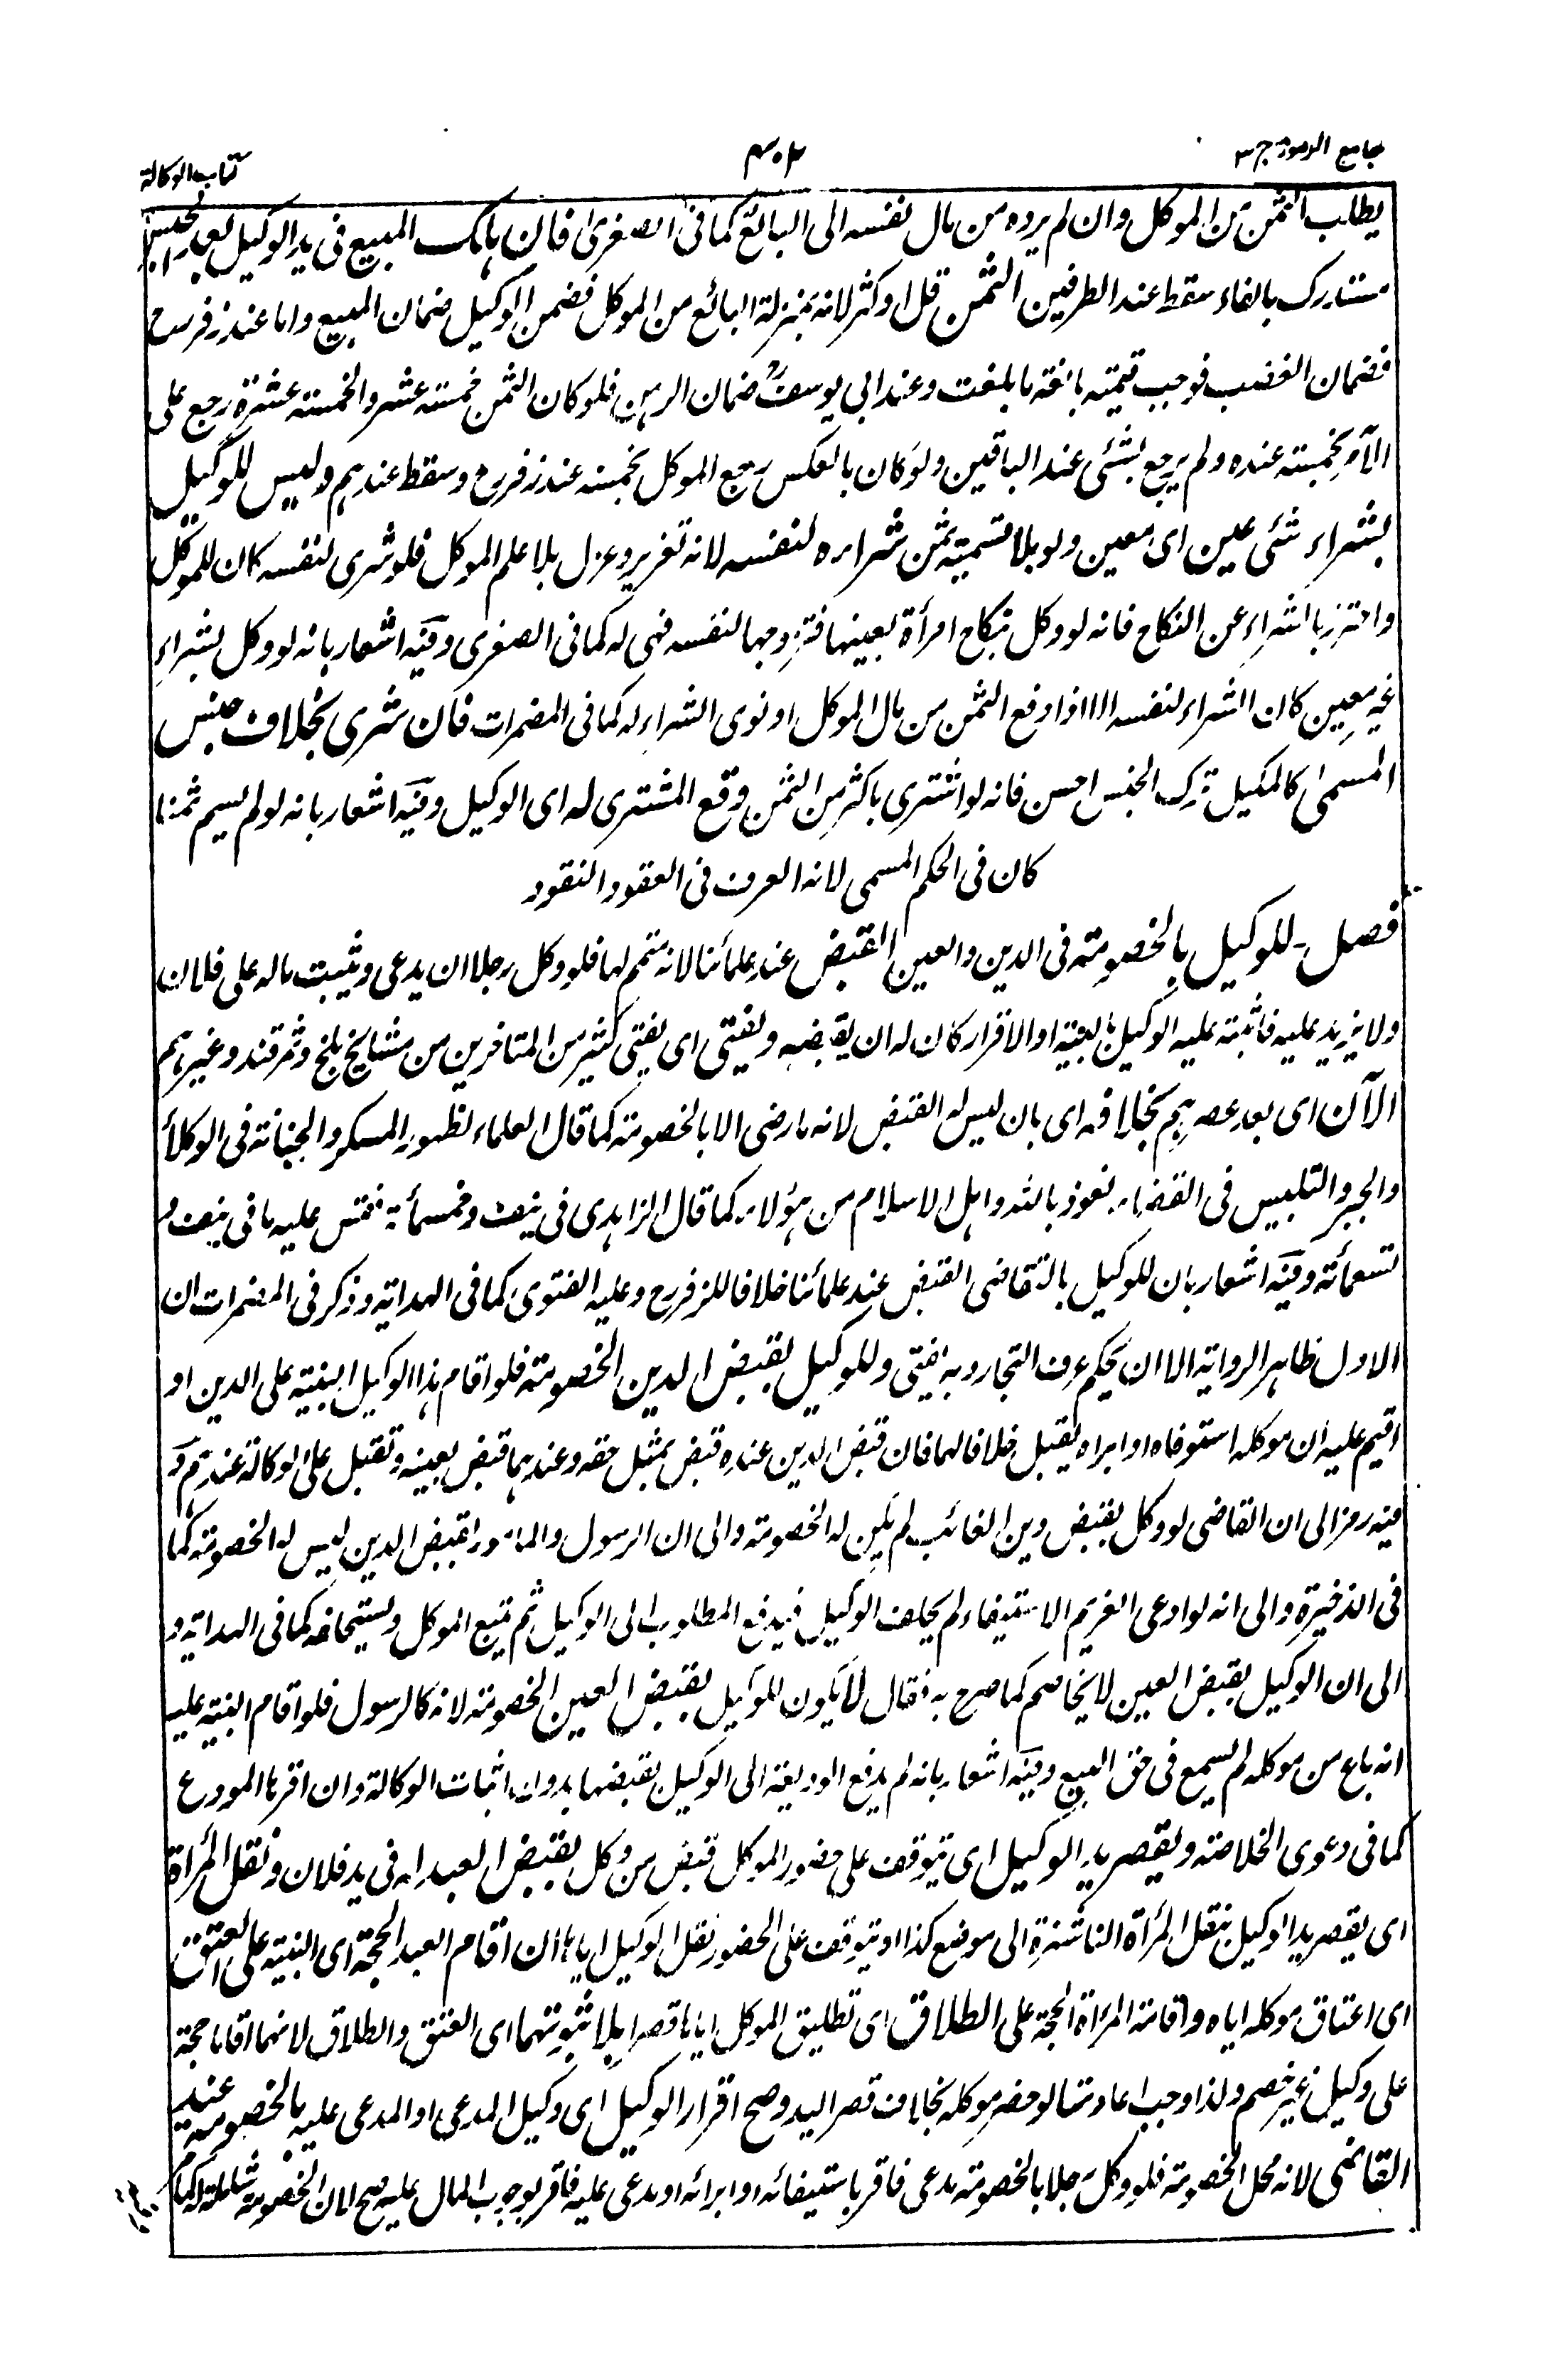 جامع الرموز ج ٣
كتاب الوكالة
يطلب الثمن من الموكل وان لم يرده من مال نفسه الى البائع كما فى الصغرى فان هلك المبيع فى يد الوكيل بعد الحبس
مستدرك بالفاء سقط عند الطرفين الثمن قل او كثر لانه بمنزلة البائع من الموكل فضمن الوكيل ضمان المبيع واما عند زفر رح
فضمان الغضب فوجب قيمته بالغة ما بلغت وعند ابى يوسف رح ضمان الرهن فلو كان الثمن خمسته عشر والخمسته عشرة رجع على
الآمر بخمسته عنده ولم يرجع بشئى عند الباقين ولو كان بالعكس رجع الموكل بخمسته عند زفر رح وسقط عندهم وليس للوكيل
بشراء شئى عين اى معين ولو بلا تسمية ثمن شراره لنفسه لانه تغرير وعزل بلا علم الموكل فلو شرى لنفسه كان للموكل
واحترز بالشراء عن النكاح فانه لو وكل بنكاح امرأة بعينها فتزوجها لنفسه فهى له كما فى الصغرى وفيه اشعار بانه لو وكل بشراء
غير معين كان الشراء لنفسه الا اذا دفع الثمن من مال الموكل او نوى الشراء له كما فى المضمرات فان شرى بخلاف جنس
المسمى كالمكيل ترك الجنس احسن فانه لو اشترى باكثر من الثمن وقع المشترى له اى الوكيل وفيه اشعار بانه لو لم يسم ثمنا
كان فى الحكم المسمى لانه العرف فى العقود النقود
فصل ـ للوكيل بالخصومته فى الدين والعين القبض عند علمائنا لانه متمم لها فلو وكل رجلا ان يدعى ويثبت ماله على فلان
ولا يزيد عليه فاثبته عليه الوكيل بالبينة او الاقرار كان له ان يقبضه ويفتى اى يفتى كثير من المتاخرين من مشايخ بلخ وسمرقند وغيرهم
الآن اى بعد عصرهم بخلافه اى بان ليس له القبض لانه ما رضى الا بالخصومته كما قال العلماء لظهور المسكر والجنانة فى الوكلاء
والجبر والتلبيس فى القضاء نعوذ بالله واهل الاسلام من هؤلاء كما قال الزاهدى فى نيف وخمسمأته فقس عليه ما فى نيف و
تسعمأته وفيه اشعار بان للوكيل بالتقاضى القبض عند علمائنا خلافا للزفر رح وعليه الفتوى كما فى الهداية وذكر فى المضمرات ان
الاول ظاهر الرواية الا ان يحكم عرف التجار وبه يفتى وللوكيل بقبض الدين الخصومته فلو اقام هذا الوكيل البينة على الدين او
اقيم عليه ان موكله استوفاه او ابراه يقبل خلافا لهما فان قبض الدين عنده قبض بمثل حقه وعندهما قبض بعينه وتقبل على الوكالة عندهم و
فيه رمز الى ان القاضى لو وكل بقبض دين الغائب لم يكن له الخصومته والى ان الرسول والمامور بقبض الدين ليس له الخصومته كما
فى الذخيرة والى انه لو ادعى الغريم الاستيفاء لم يحلف الوكيل فيدفع المطلوب الى الوكيل ثم يتبع الموكل ويستحلفه كما فى الهداية و
الى ان الوكيل بقبض العين لا يخاصم كما صرح به فقال لا يكون للوكيل بقبض العين الخصومته لانه كالرسول فلو اقام البينة عليه
انه باع من موكله لم يسمع فى حق البيع وفيه اشعار بانه لم يدفع الوديعة الى الوكيل بقبضها بدون اثبات الوكالة وان اقربها المودع
كما فى دعوى الخلاصته ويقصر يد الوكيل اى يتوقف على حضور الموكل قبض من وكل بقبض العبد له فى يد فلان ونقل المرأة
اى يقصر يد الوكيل بنقل المرأة الناشزة الى موضع كذا او يتوقف على الحضور نقل الوكيل اياها ان اقام العبد الحجة اى البينة على العتق
اى اعتاق موكله اياه واقامته المرأة الحجة على الطلاق اى تطليق الموكل اياها قصرا بلا ثبوتهما اى العتق والطلاق لانهما اقاما حجة
على وكيل غير خصم ولذا وجب اعادتها لو حضر موكله بخلاف قصر اليد وصح اقرار الوكيل اى وكيل المدعى او المدعى عليه بالخصومته عند
القاضى لانه محل الخصومته فلو وكل رجلا بالخصومته يدعى فاقر باستيفائه او ابرائه او يدعى عليه فاقر بوجوب المال عليه صح لان الخصومته شاملة له كما